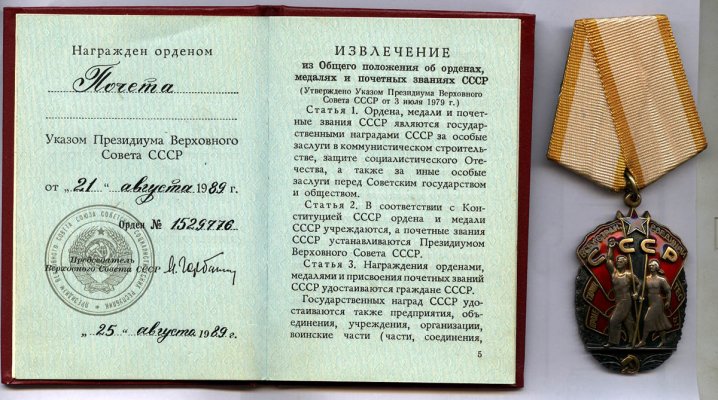 Награжден орденом
Почета
Указом Президиума Верховного
Совета СССР
от „21“ августа 1989 г.
Орден № 1529776
Председатель
Верховного Совета СССР
„25“ августа 1989 г.
ИЗВЛЕЧЕНИЕ
из Общего положения об орденах,
медалях и почетных званиях СССР
(Утверждено Указом Президиума Верховного
Совета СССР от 3 июля 1979 г.)
Статья 1. Ордена, медали и почет-
ные звания СССР являются государ-
ственными наградами СССР за особые
заслуги в коммунистическом строитель-
стве, защите социалистического Оте-
чества, а также за иные особые
заслуги перед Советским государством
и обществом.
Статья 2. В соответствии с Кон-
ституцией СССР ордена и медали
СССР учреждаются, а почетные звания
СССР устанавливаются Президиумом
Верховного Совета СССР.
Статья 3. Награждения орденами,
медалями и присвоения почетных званий
СССР удостаиваются граждане СССР.
Государственных наград СССР удо-
стаиваются также предприятия, объ-
единения, учреждения, организации,
воинские части (части, соединения,
5
СССР